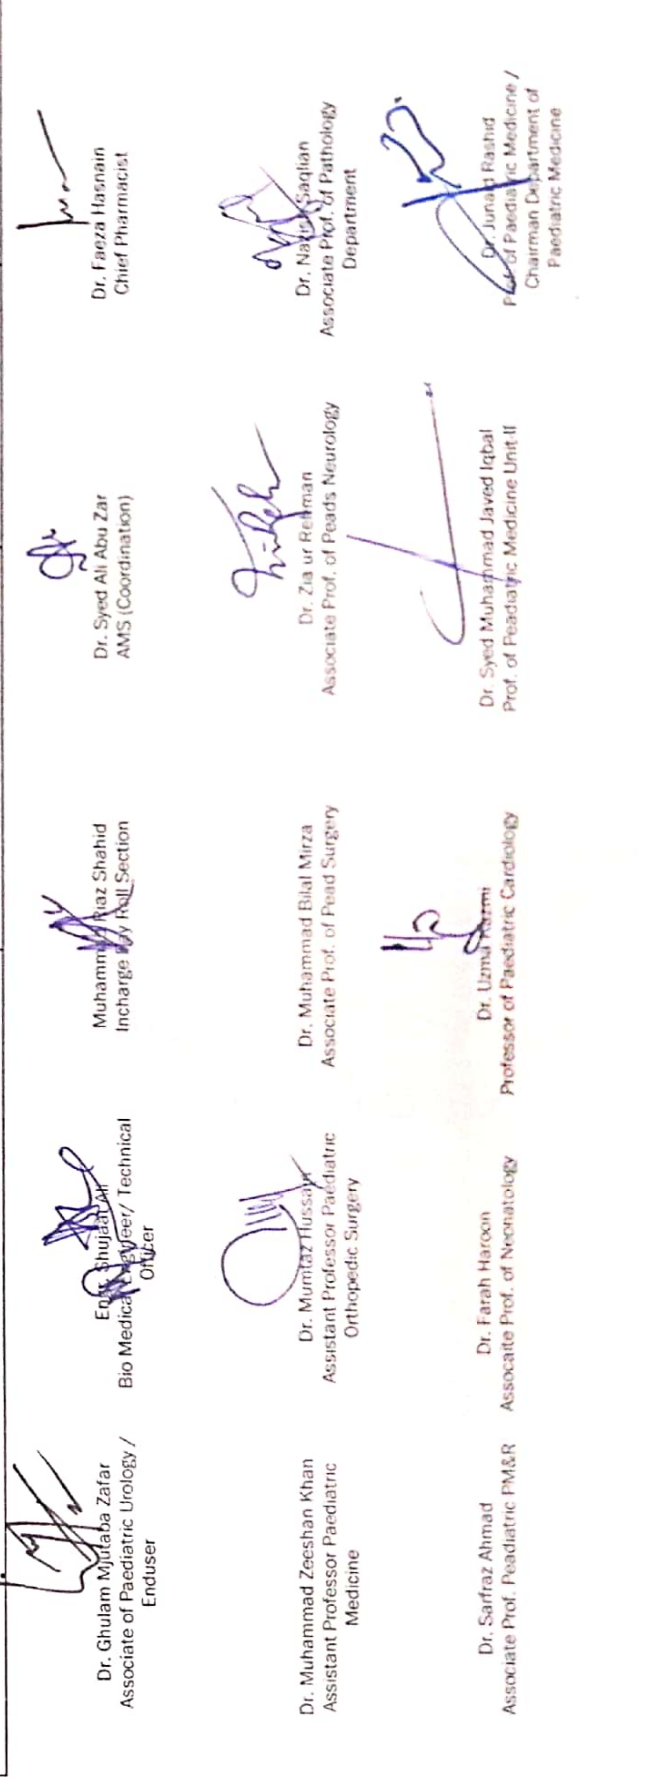 Dr. Ghulam Mjutaba Zafar
Associate of Paediatric Urology /
Enduser
Engr. Shujaat Ali
Bio Medical Engineer/ Technical
Officer
Muhammad Riaz Shahid
Incharge Pay Roll Section
Dr. Syed Ali Abu Zar
AMS (Coordination)
Dr. Faeza Hasnain
Chief Pharmacist
Dr. Muhammad Zeeshan Khan
Assistant Professor Paediatric
Medicine
Dr. Mumtaz Hussain
Assistant Professor Paediatric
Orthopedic Surgery
Dr. Muhammad Bilal Mirza
Associate Prof. of Pead Surgery
Dr. Zia ur Rehman
Associate Prof. of Peads Neurology
Dr. Saqlian
Associate Prof. of Pathology
Department
Dr. Sarfraz Ahmad
Associate Prof. Peadiatric PM&R
Dr. Farah Haroon
Assocaite Prof. of Neonatology
Dr. Uzma
Professor of Paediatric Cardiology
Dr. Syed Muhammad Javed Iqbal
Prof. of Peadiatric Medicine Unit-II
Dr. Junaid Rashid
Prof. of Paediatric Medicine /
Chairman Department of
Paediatric Medicine